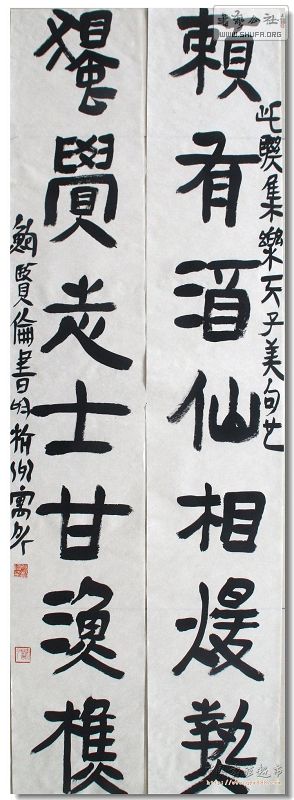 書法公社
WWW.SHUFA.ORG
賴有酒仙相煖熱
此聯集樂天子美句也
獨覺志士甘漁樵
鮑賢倫書於杭州寓所